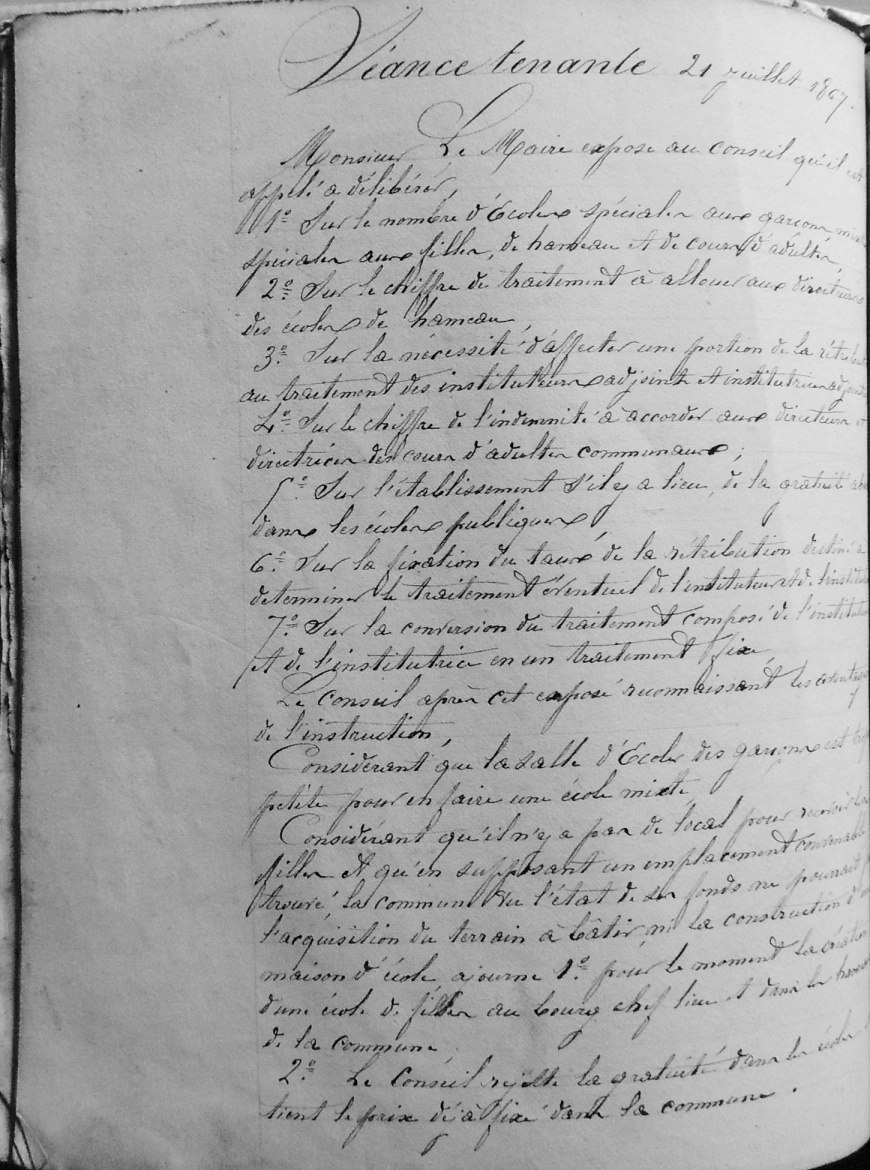 Séance tenante 21 juillet 1867.
Monsieur Le Maire expose au conseil qu'il est
appelé a délibérer,
1º Sur le nombre d'Ecoles spéciales aux garçons
spéciales aux filles, de hameau et de cours d'adultes,
2º Sur le chiffre de traitement à allouer aux directrices
des écoles de hameau,
3º Sur la nécessité d'affecter une portion de la
au traitement des instituteurs adjoints et institutrices
4º Sur le chiffre de l'indemnité à accorder aux directeurs et
directrices des cours d'adultes communaux ;
5º Sur l'établissement s'il y a lieu, de la gratuité
dans les écoles publiques
6º Sur la fixation du taux de la rétribution destiné à
determiner le traitement éventuel de l'instituteur et de
7º Sur la conversion du traitement composé de
et de l'institutrice en un traitement fixe,
Le Conseil après cet exposé reconnaissant les
de l'instruction,
Considerant que la salle d'Ecole des garçons est
petite pour en faire une école mixte
Considérant qu'il n'y a pas de local pour recevoir les
filles et qu'en supposant un emplacement convenable
trouvé la commune vu l'état de ses fonds ne pourrait
l'acquisition du terrain à bâtir, ni la construction
maison d'école, ajourne 1º pour le moment la création
d'une école de filles au bourg chef lieu et dans les
de la commune,
2º Le Conseil rejette la gratuité dans les écoles
tient le prix déjà fixé dans la commune.